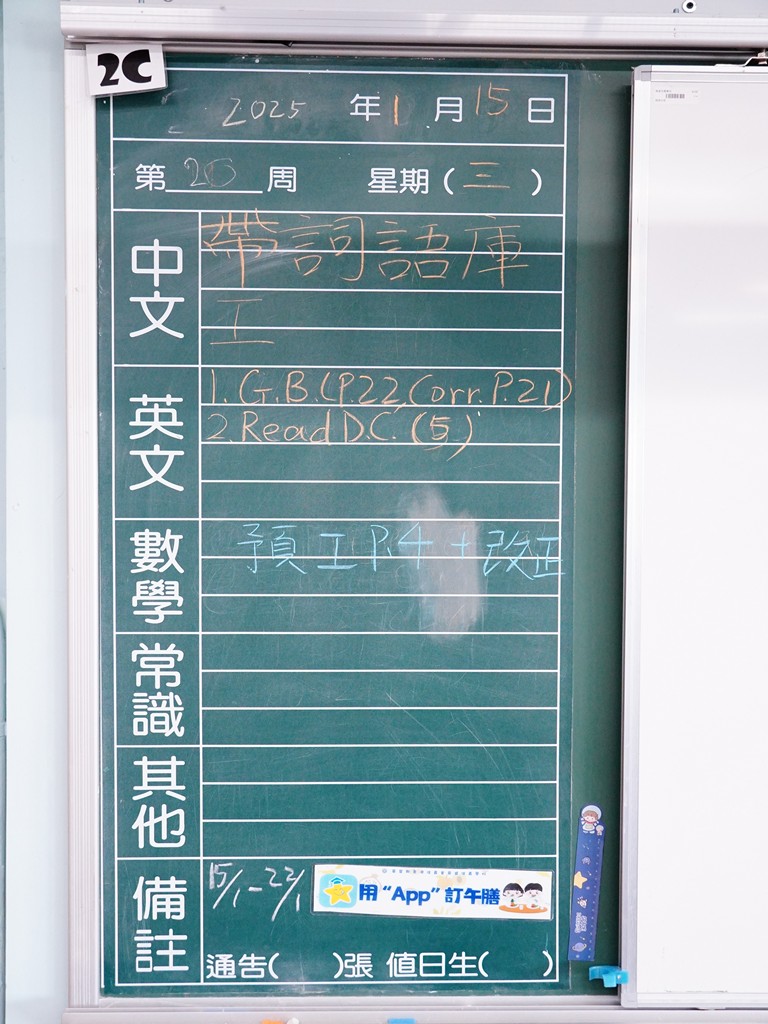 2C
2025 年 1 月 15 日
第 20 周 星期 ( 三 )
中文
帶詞語庫
工
英文
1. G.B. (P.22, Corr. P.21)
2. Read D.C. (5)
數學
預工 P.4 + 改正
常識
其他
備註
15/1 - 22/1
用 “App” 訂午膳
通告( )張 值日生( )